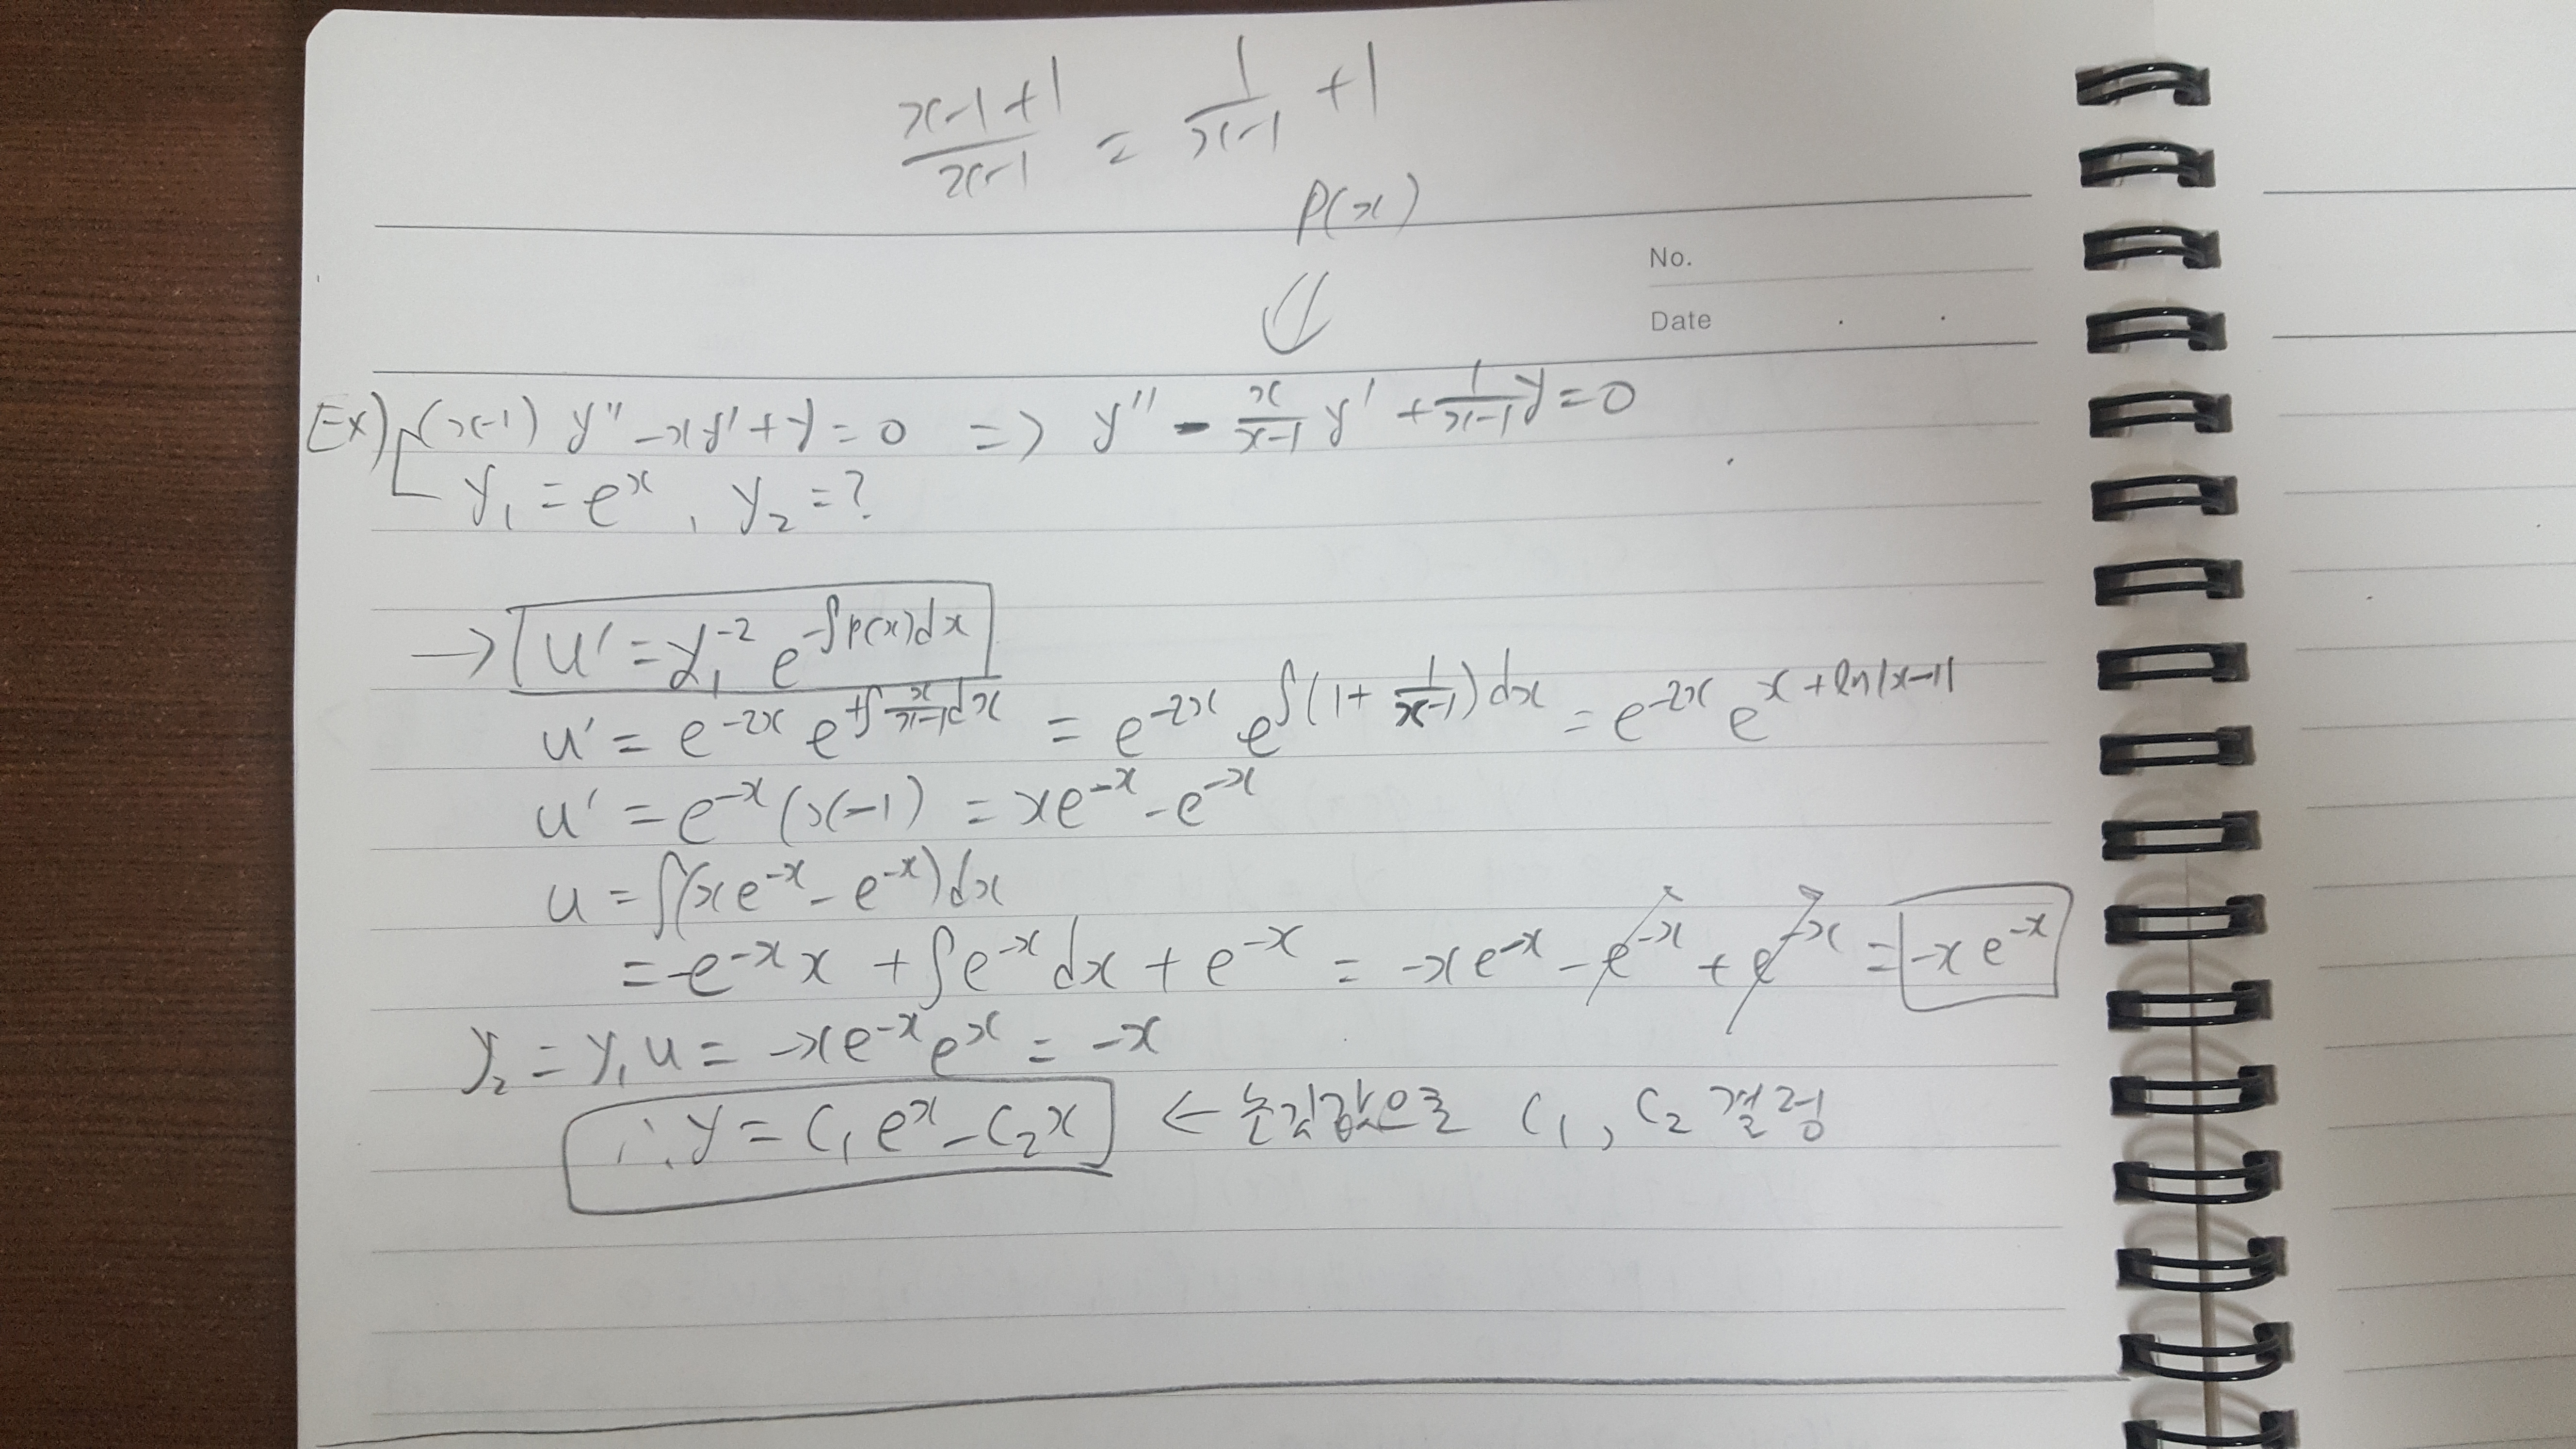 x-1+1/x-1 = 1/x-1 + 1
p(x)
No.
Date
Ex) (x-1)y'' - xy' + y = 0 => y'' - x/x-1 y' + 1/x-1 y = 0
y₁ = eˣ, y₂ = ?
→ u' = y₁⁻² e^-∫p(x)dx
u' = e⁻²ˣ e^+∫x/x-1 dx = e⁻²ˣ e^∫(1+1/x-1)dx = e⁻²ˣ e^x+ln|x-1|
u' = e⁻ˣ(x-1) = xe⁻ˣ - e⁻ˣ
u = ∫(xe⁻ˣ - e⁻ˣ)dx
= -e⁻ˣx + ∫e⁻ˣdx + e⁻ˣ = -xe⁻ˣ - e⁻ˣ + e⁻ˣ = -xe⁻ˣ
y₂ = y₁u = -xe⁻ˣeˣ = -x
∴ y = C₁eˣ - C₂x ← 초기값으로 C₁, C₂ 결정